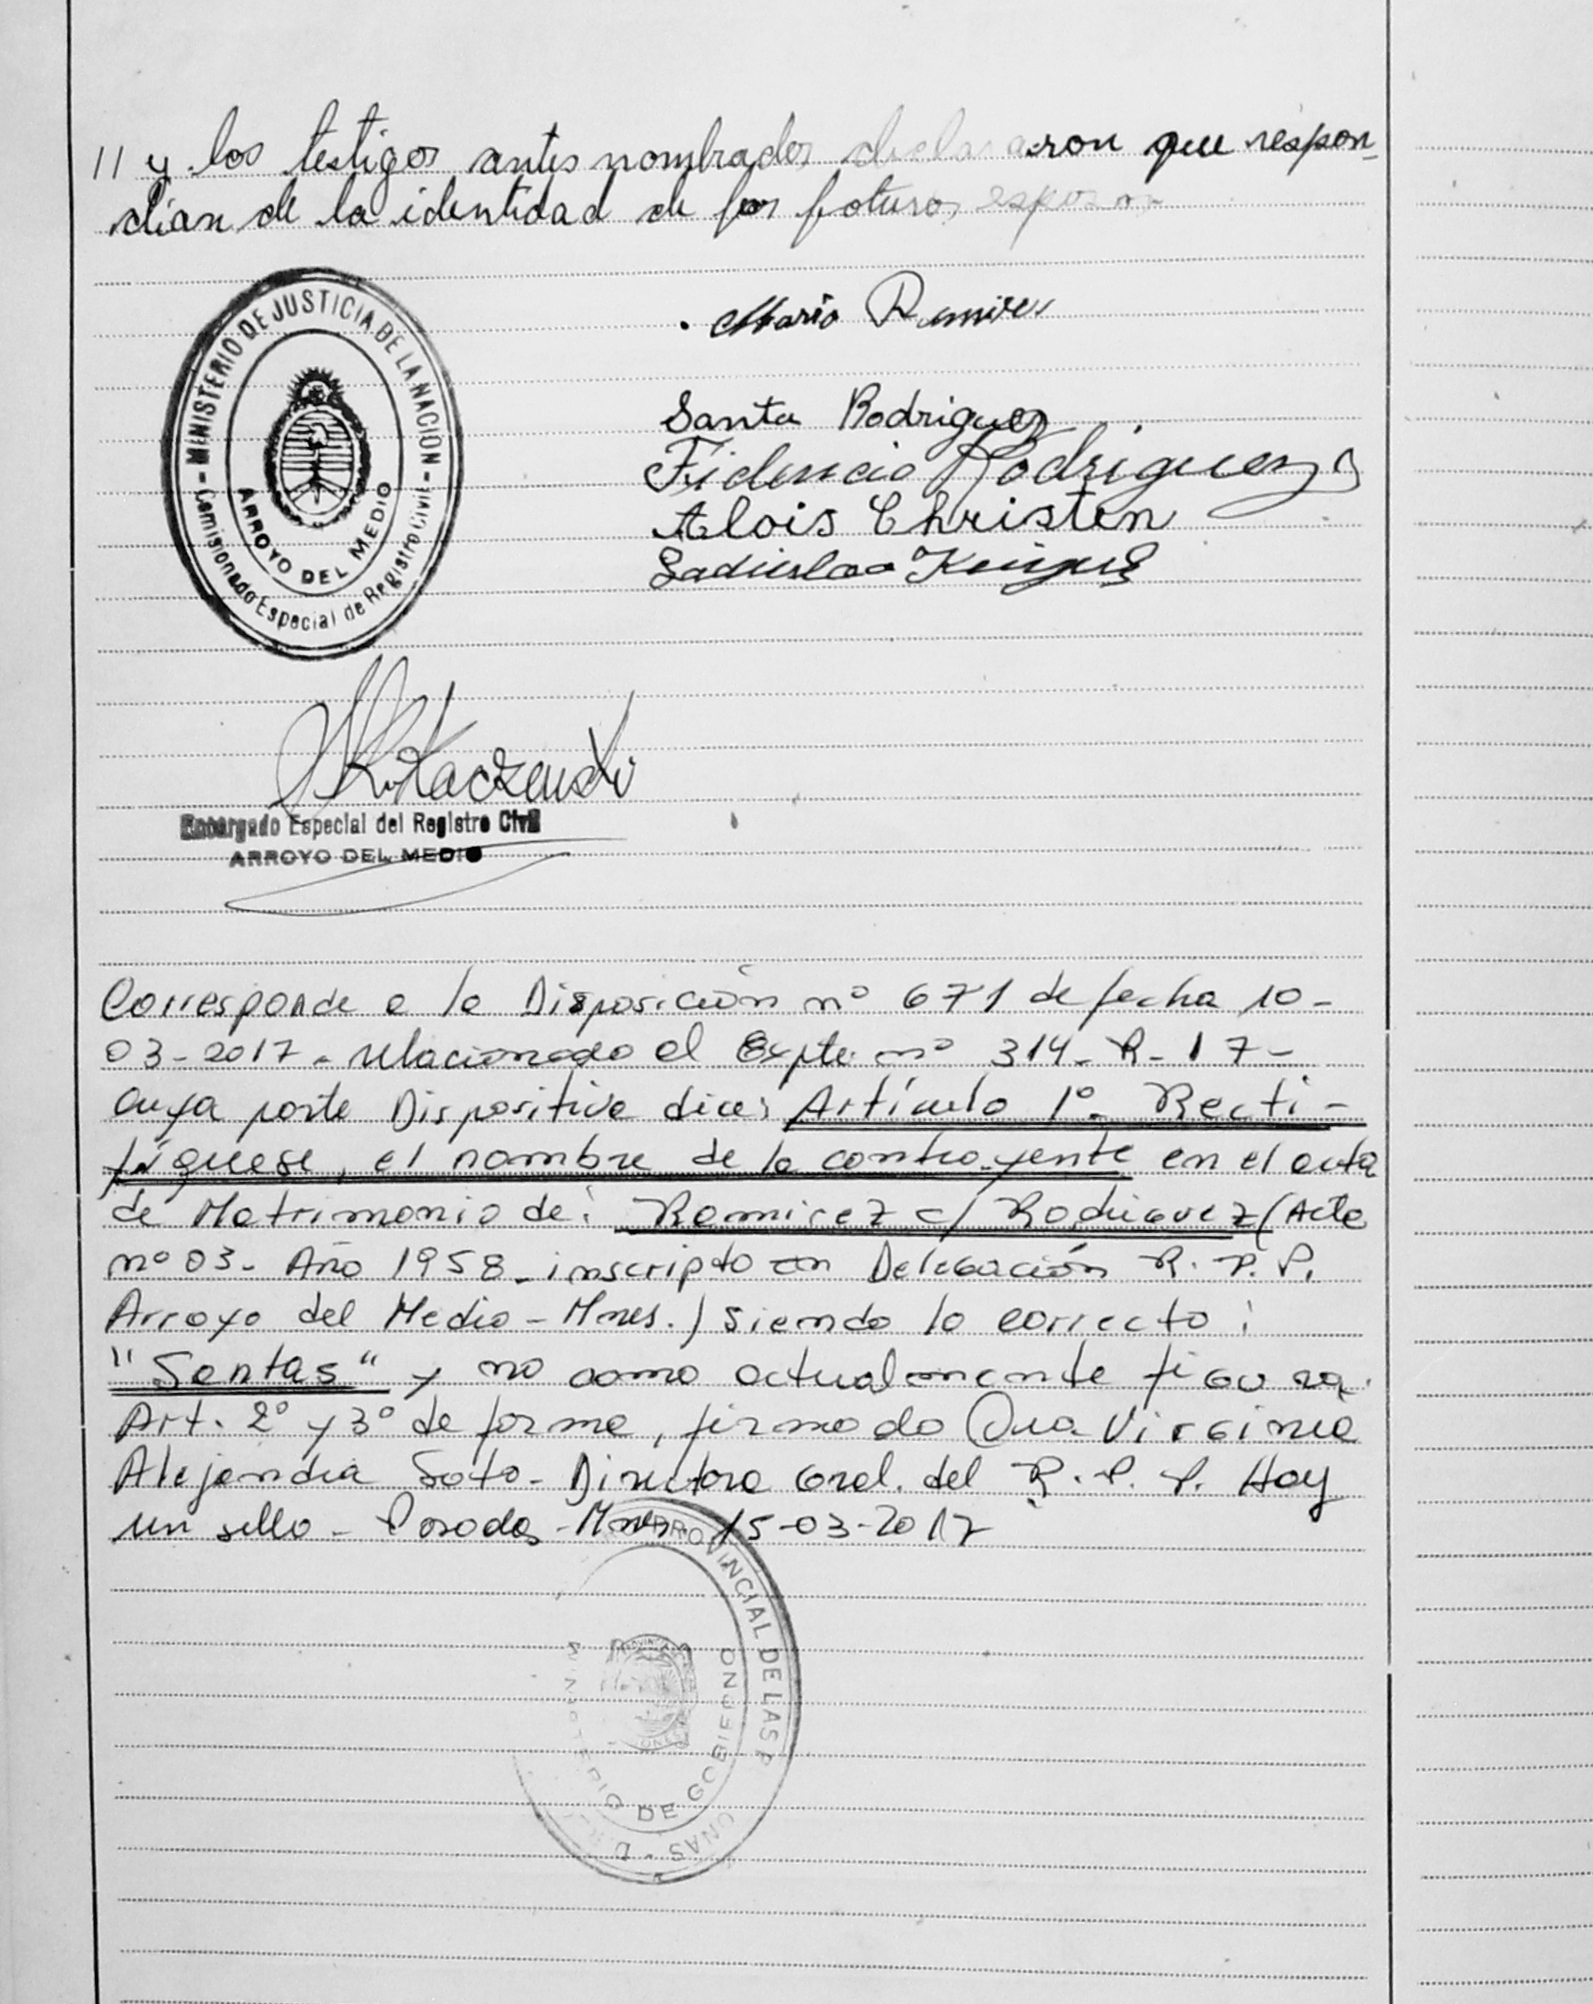 // y los testigos antes nombrados declararon que respon-
dian de la identidad de los foturos esposos
Mario Ramires
MINISTERIO DE JUSTICIA DE LA NACION
- Comisionado Especial de Registro Civil -
ARROYO DEL MEDIO
Santa Rodriguez
Fidencio Rodriguez
Alois Christen
Ladislao
Encargado Especial del Registro Civil
ARROYO DEL MEDIO
Corresponde a la Disposición nº 671 de fecha 10-
03-2017- relacionado el Expte nº 314-R-17-
cuya parte Dispositiva dice: Artículo 1º- Recti-
fíquese, el nombre de la contrayente en el acta
de Matrimonio de: Ramirez c/ Rodriguez (Acta
nº 03- Año 1958- inscripto en Delegación R. P. P.
Arroyo del Medio - Mnes.) siendo lo correcto:
"Santas" y no como actualmente figura.
Art. 2º y 3º de forma, firmado Dra Virginia
Alejandra Soto- Directora Gral. del R. P. P. Hay
un sello - Posadas - Mnes. 15-03-2017
PROVINCIAL DE LAS P
ONAS - D
MINISTERIO DE GOBIERNO